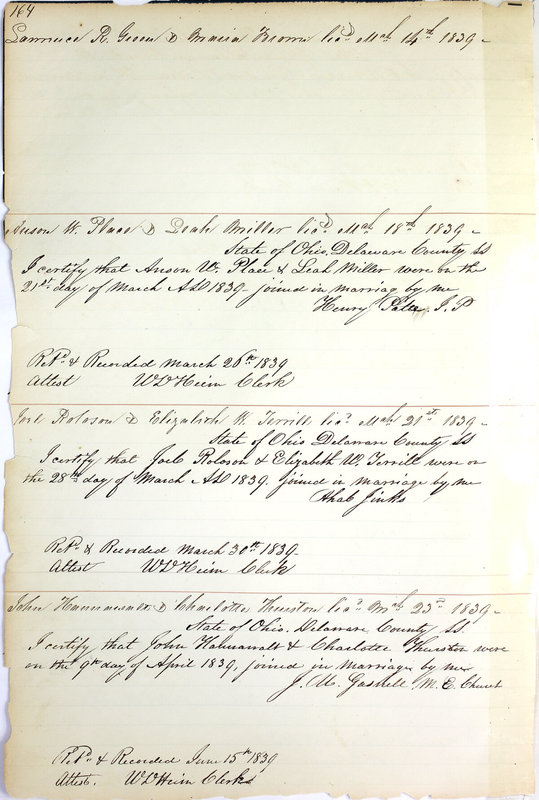 164
Lawrence R. Green & Maria Brown lic'd Mch 14th 1839 -
Anson W. Place & Leah Miller lic'd Mch 18th 1839 -
State of Ohio, Delaware County SS
I certify that Anson W. Place & Leah Miller were on the
21st day of March AD 1839 joined in marriag by me
Henry J. P
Ret'd & Recorded March 26th 1839
Attest W D Heim Clerk
Joel Roloson & Elizabeth W. Terrill lic'd Mch 21st 1839 -
State of Ohio Delaware County SS
I certify that Joel Roloson & Elizabeth W. Terrill were on
the 28th day of March AD 1839, joined in marriage by me
Ahab Jinks
Ret'd & Recorded March 30th 1839 -
Attest W D Heim Clerk
John & Charlotte Thurston lic'd Mch 23rd 1839 -
State of Ohio. Delaware County SS.
I certify, that John Hannawalt & Charlotte Thurston were
on the 9th day of April 1839, joined in marriage by me
J. M. Gashell M. E. Church
Ret'd & Recorded June 15th 1839
Attest. W D Heim Clerk